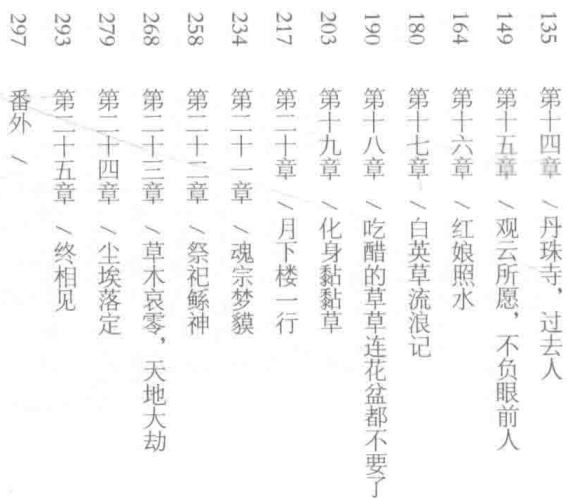 135 第十四章 / 丹珠寺，过去人
149 第十五章 / 观云所愿，不负眼前人
164 第十六章 / 红娘照水
180 第十七章 / 白英草流浪记
190 第十八章 / 吃醋的草草连花盆都不要了
203 第十九章 / 化身黏黏草
217 第二十章 / 月下楼一行
234 第二十一章 / 魂宗梦貘
258 第二十二章 / 祭祀鲧神
268 第二十三章 / 草木哀零，天地大劫
279 第二十四章 / 尘埃落定
293 第二十五章 / 终相见
297 番外 /